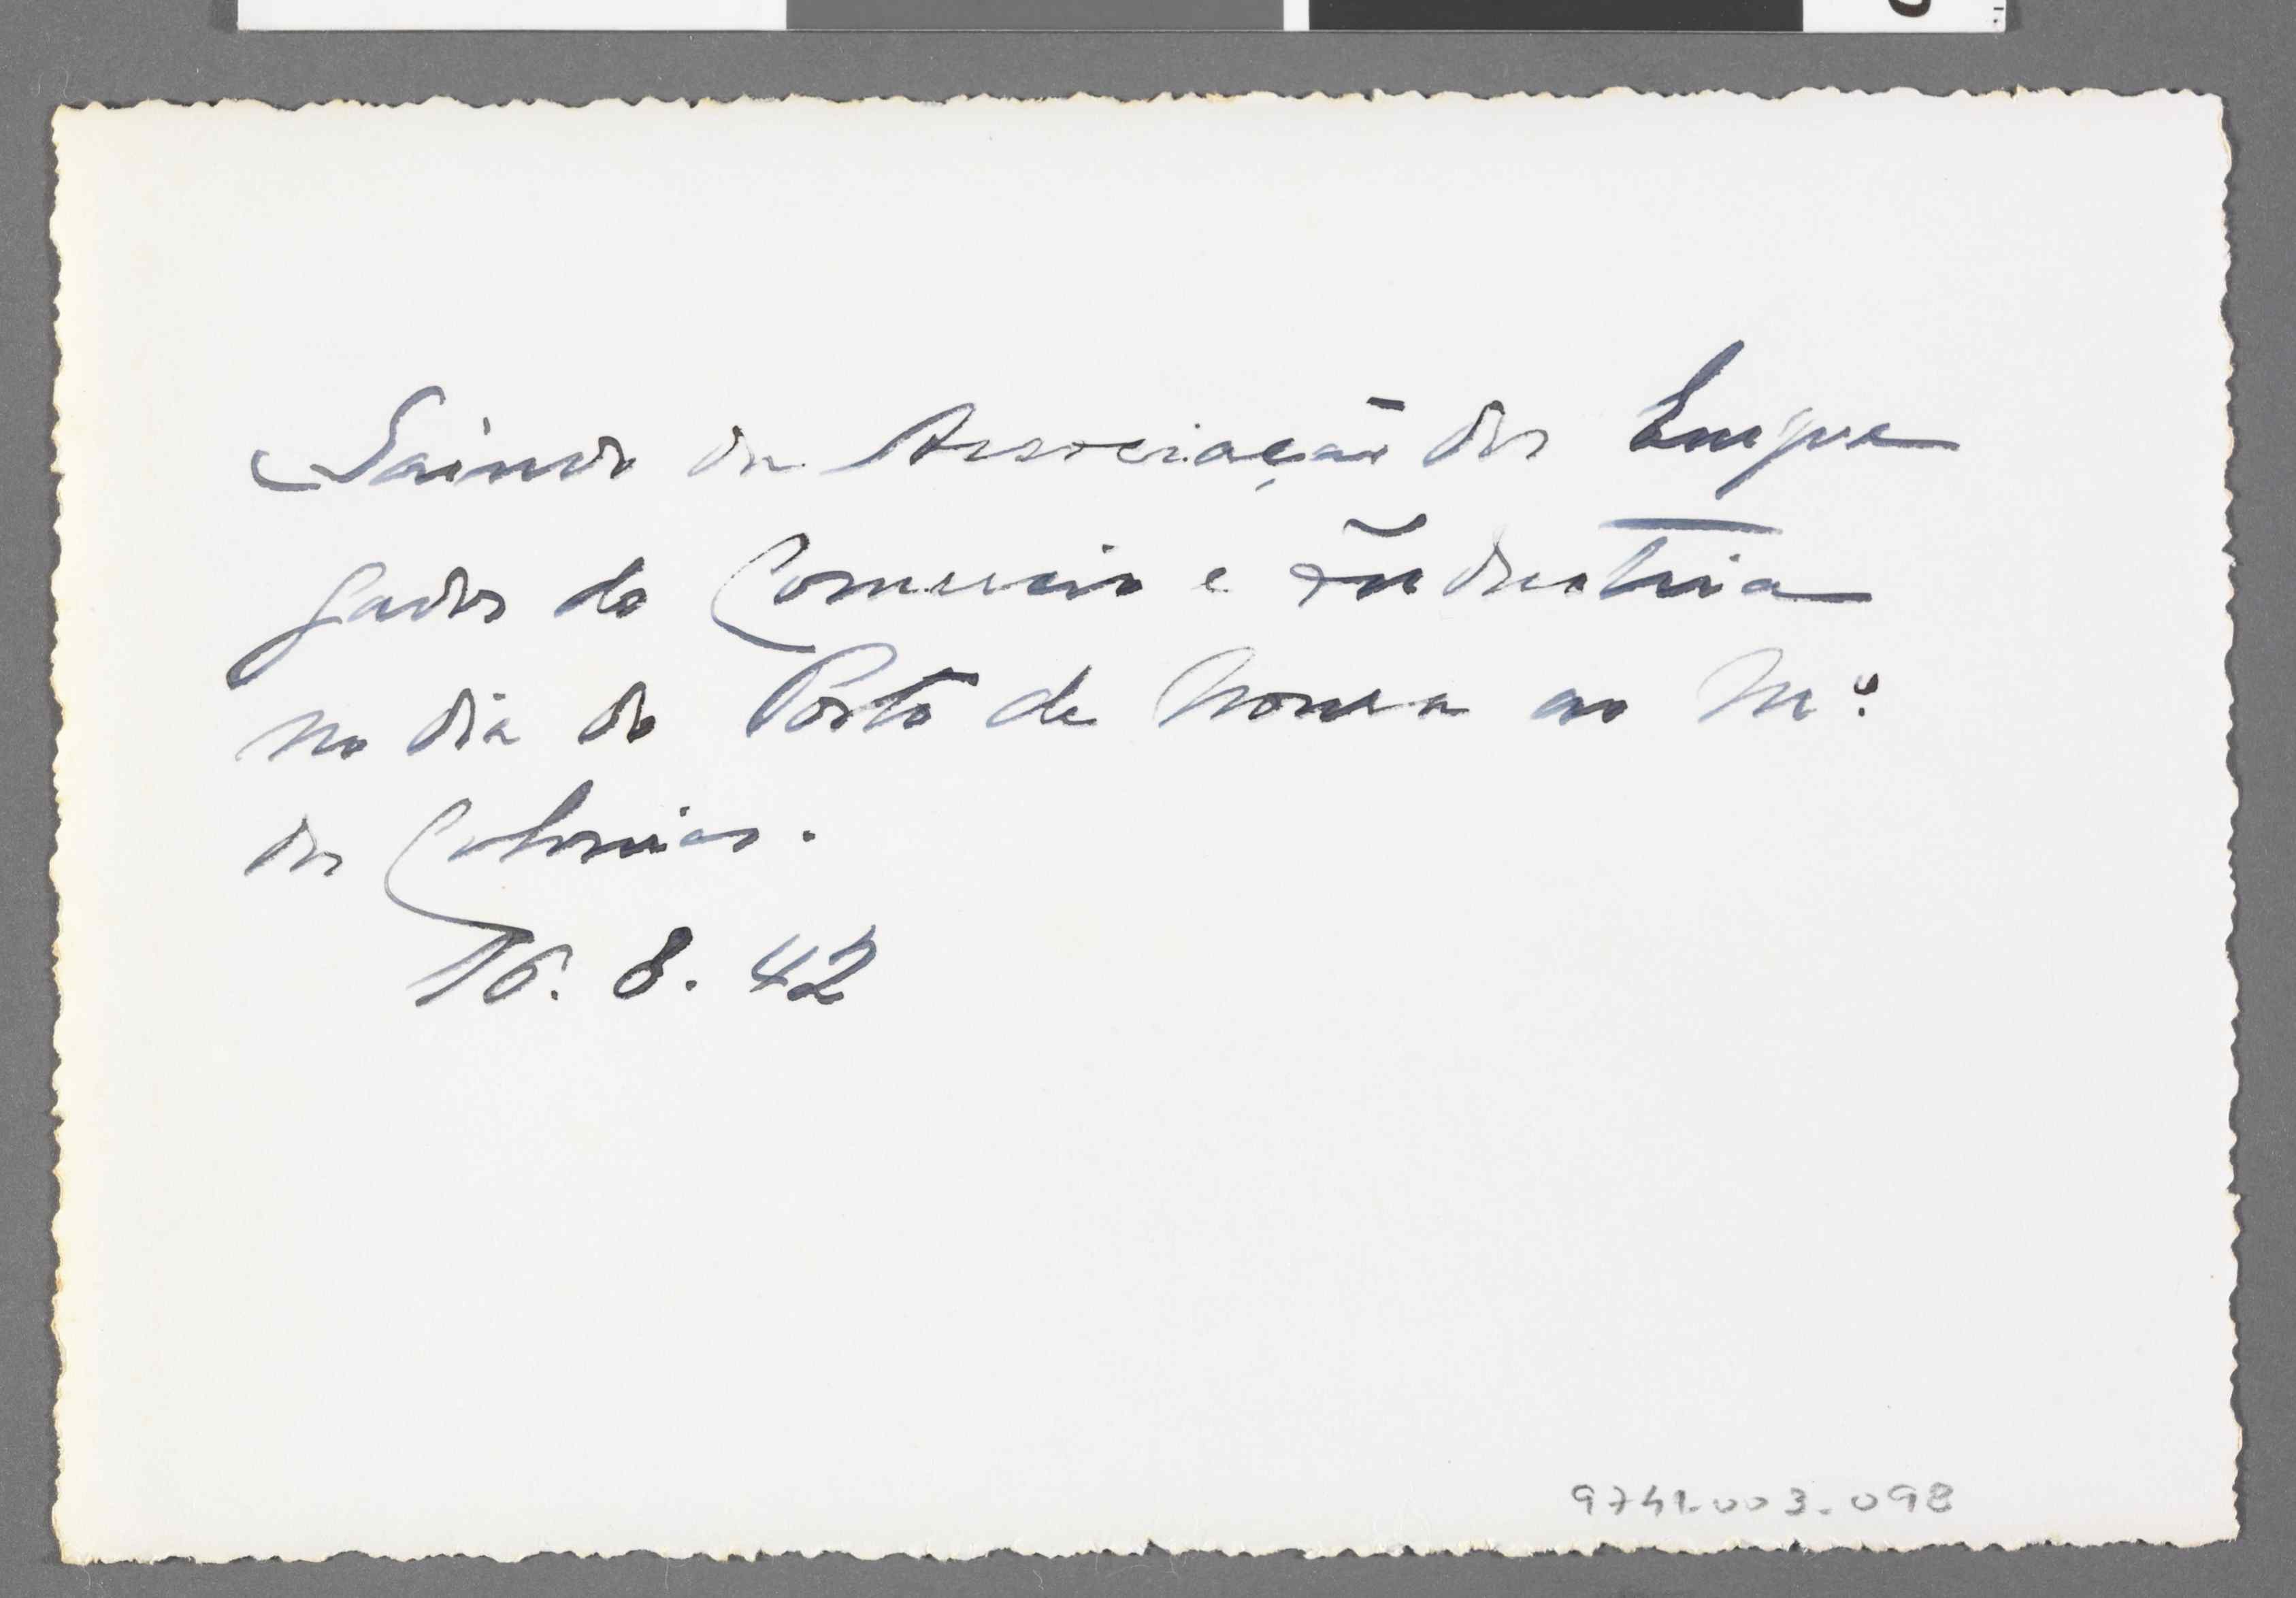 Saindo da Associação dos Empre
gados do Comercio e Industria
no dia do Porto de Honra ao Mº
das Colonias.
16. 8. 42
9741.003.098